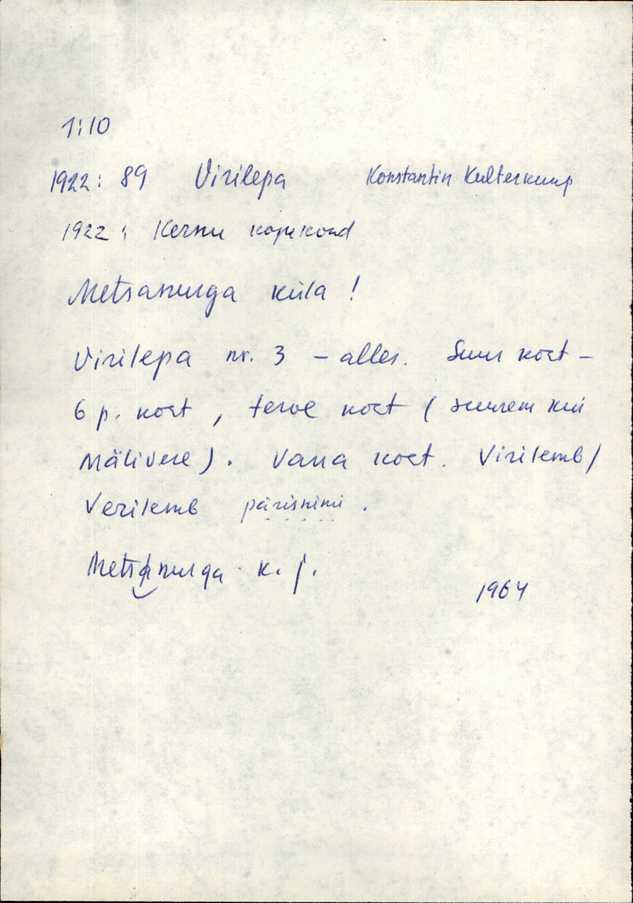 1:10
1922: 89 Virilepa Konstantin Kulterkamp
1922: Kernu kogukond
Metsanurga küla!
Virilepa nr. 3 – alles. Suur koet –
6 p. koet, terve koet (suurem kui
Mälivere). Vana koet. Virilemb/
Verilemb pärisnimi.
Metsanurga k. j.
1964